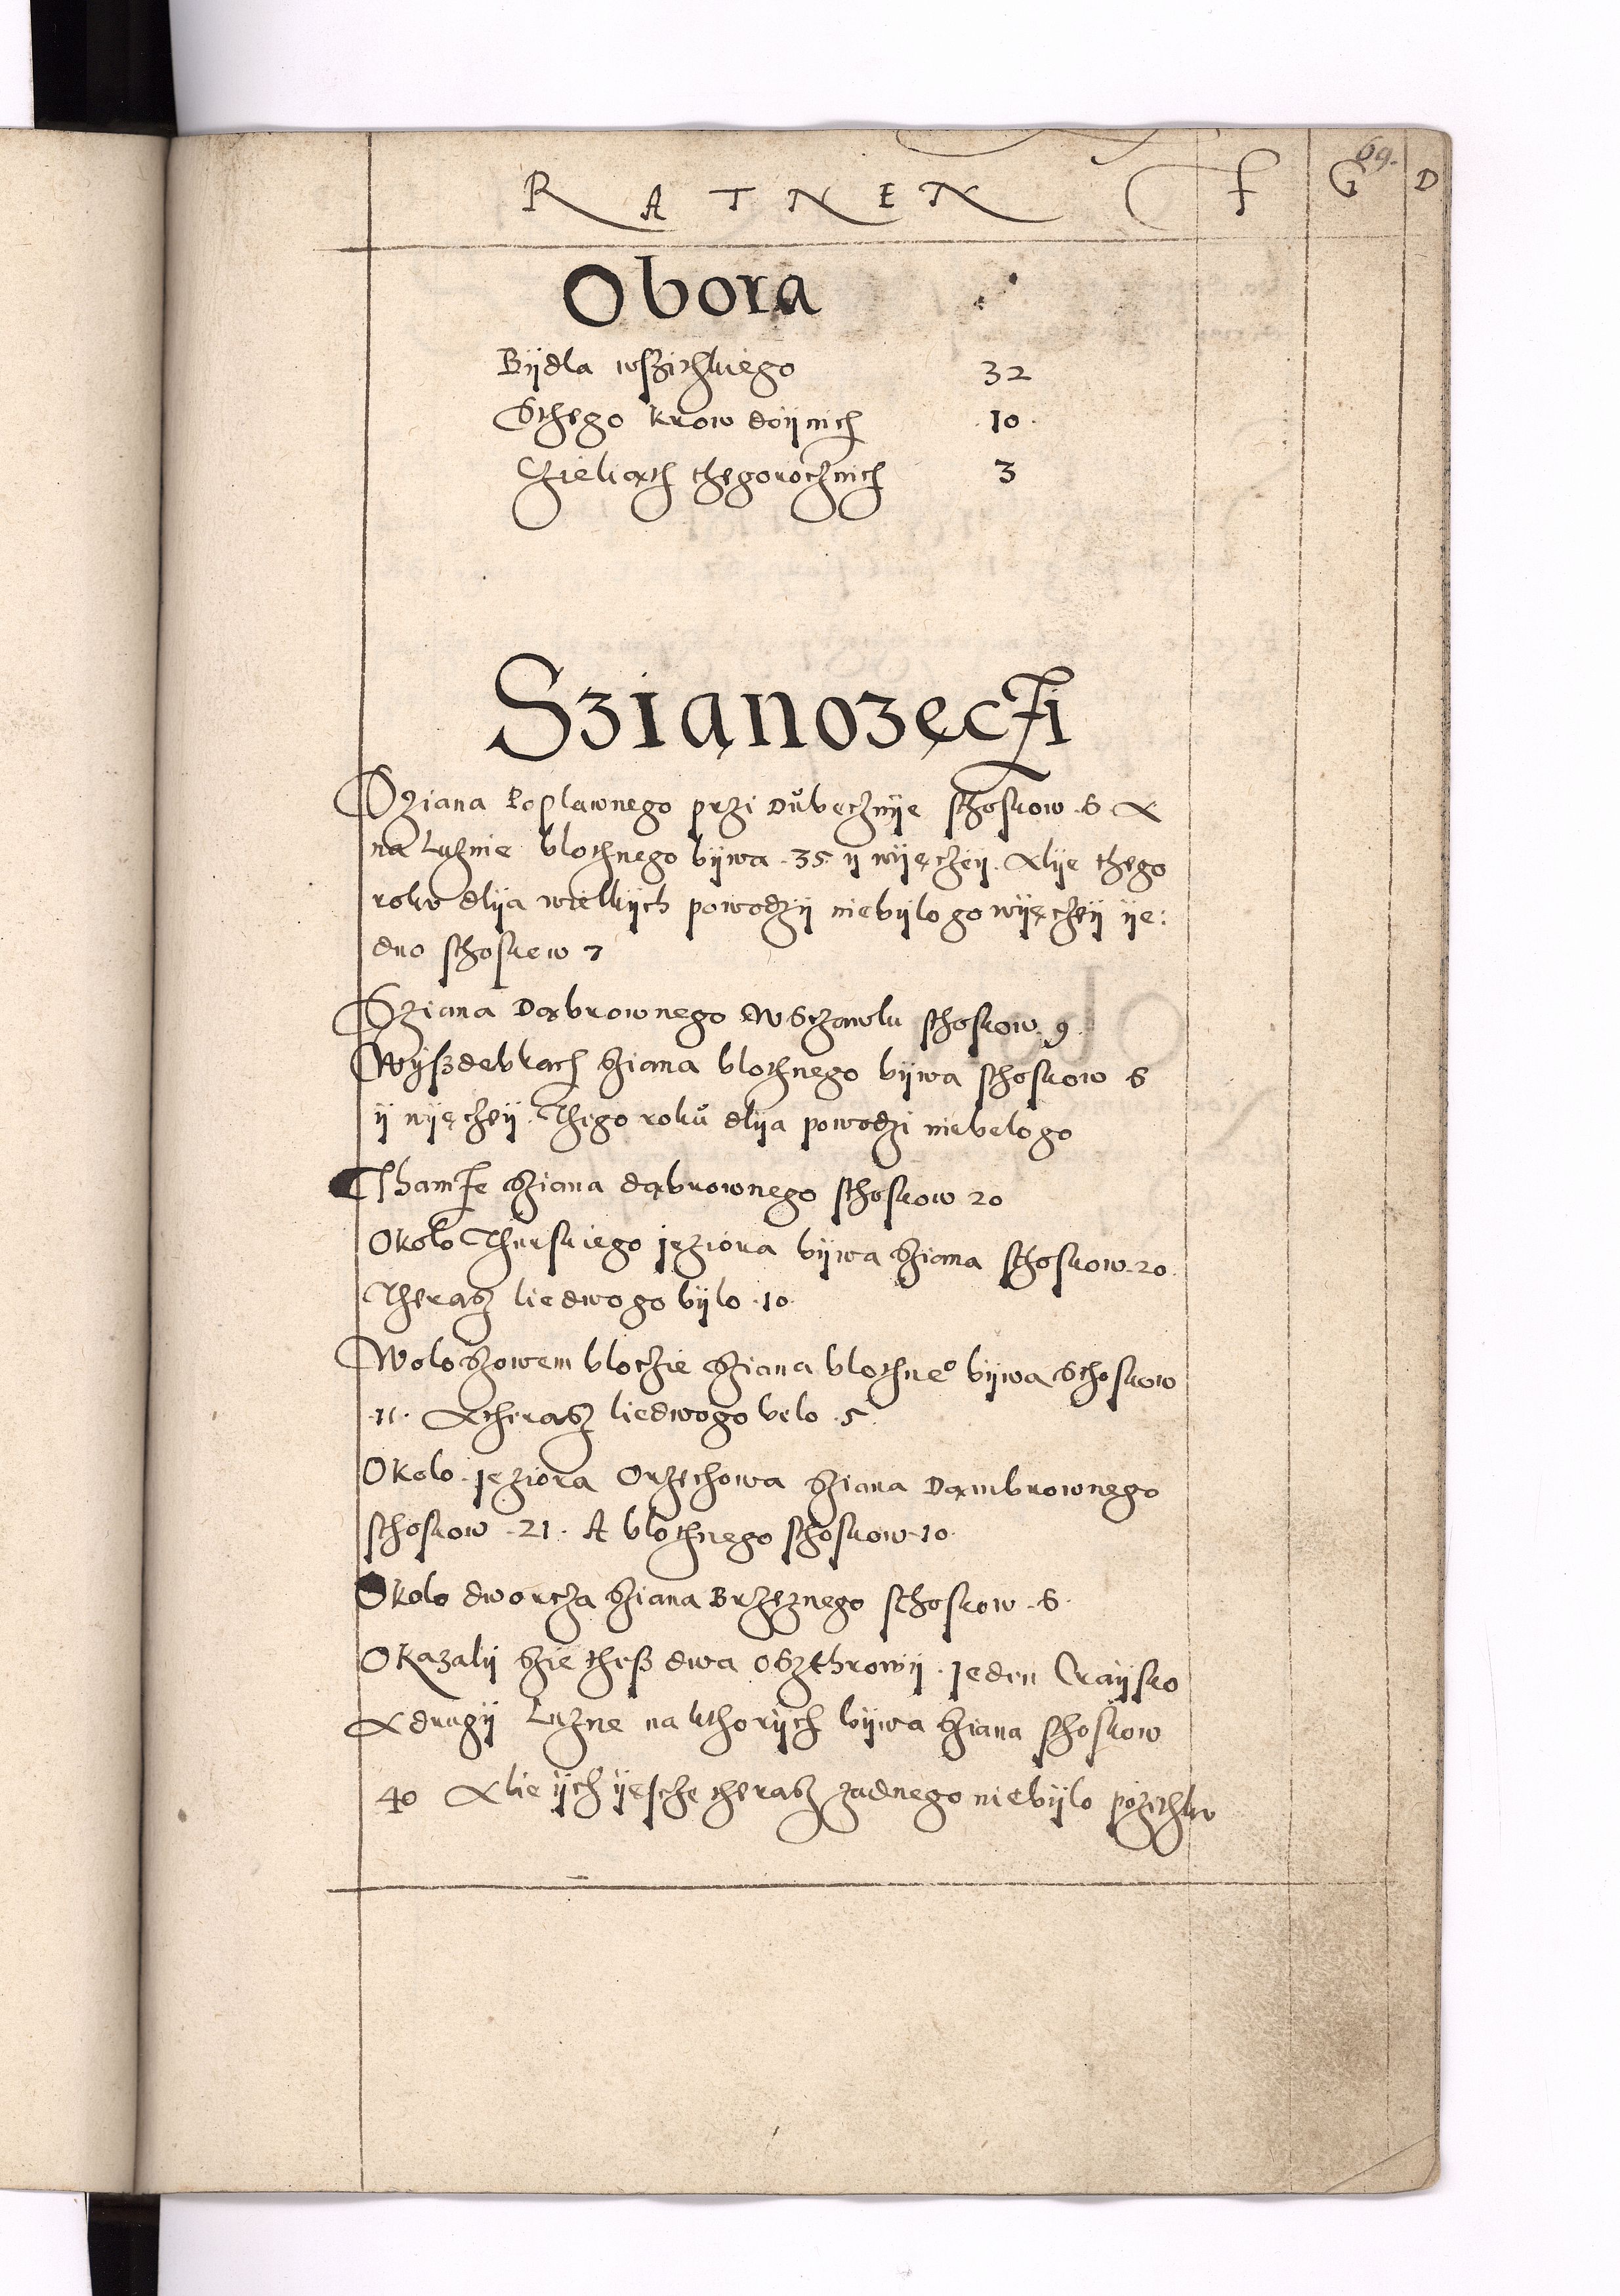 69.
RATNEN F G D
Obora
Bÿdla wszichkiego 32
Sthego krow doÿnich 10
Czieliąth thegorocznich 3
Szianozęczi
Sziana Poplawnego przi Důbecznÿe sthoskow 6 A
na Luznie blothnego bÿwa 35 ÿ wÿęczeÿ. Alÿe thego
roku dlÿa wielkÿch powodzÿ niebÿlo go wÿęczeÿ ÿe:
dno sthoskow 7
Sziana Dąbrownego W Sczawlu sthoskow 9.
Wÿszdebkach Sziana blothnego bÿwa sthoskow 6
ÿ wÿęczeÿ. Thego roků dlÿa powodzi niebelo go
Thamże Sziana dąbrownego sthoskow 20
Okolo Thurskiego jeziora bÿwa Sziana sthoskow 20.
Therasz liedwo go bÿlo 10.
Woloszowem bloczie Sziana blothneo bÿwa Sthoskow
11. A therasz liedwo go belo 5.
Okolo jeziora Orzechowa Sziana Dąmbrownego
sthoskow 21. A blothnego sthoskow 10.
Okolo dworcza Sziana Brzeznego sthoskow 6.
Okazalÿ Szie thesz dwa Oszthrowÿ. Jeden Craÿsko
A drugÿ Luzne na kthorÿch bÿwa Sziana sthoskow
40 A lie ÿch ÿesche therasz zadnego niebÿlo pozithku